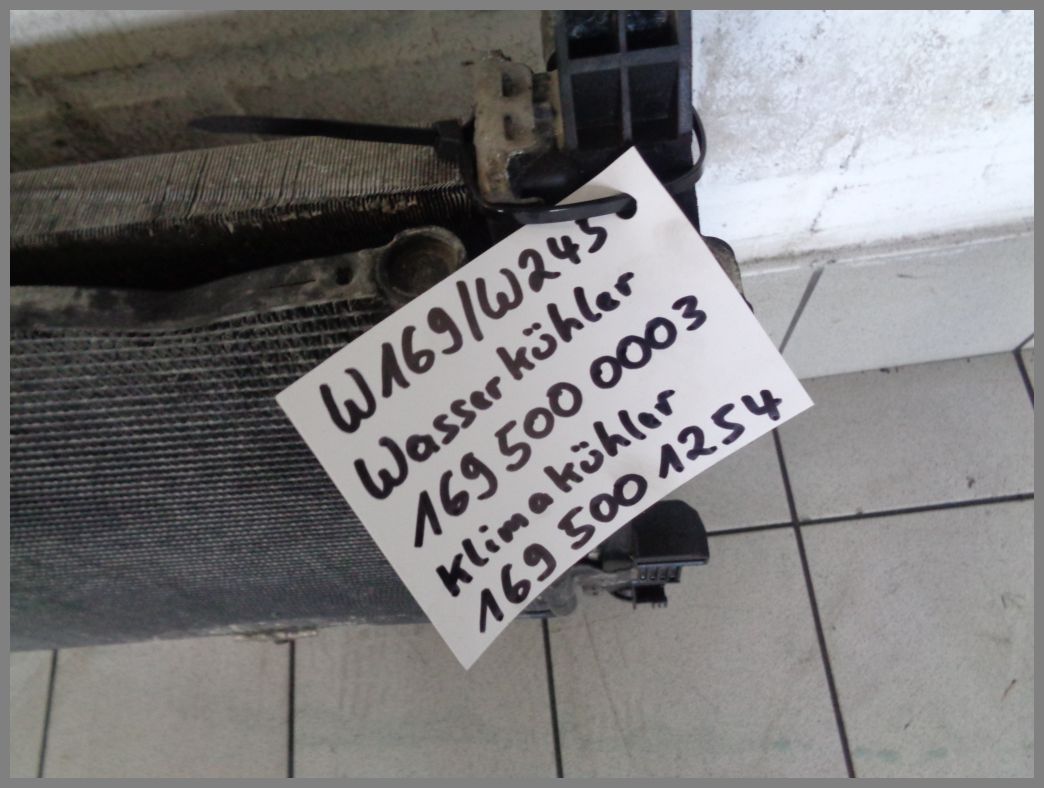 W169/W245
Wasserköhler
169 500 0003
Klimaköhler
169 500 1254